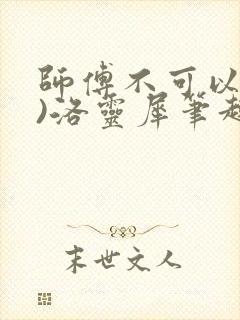 師傅不可以
)洛靈犀筆趣
末世文人